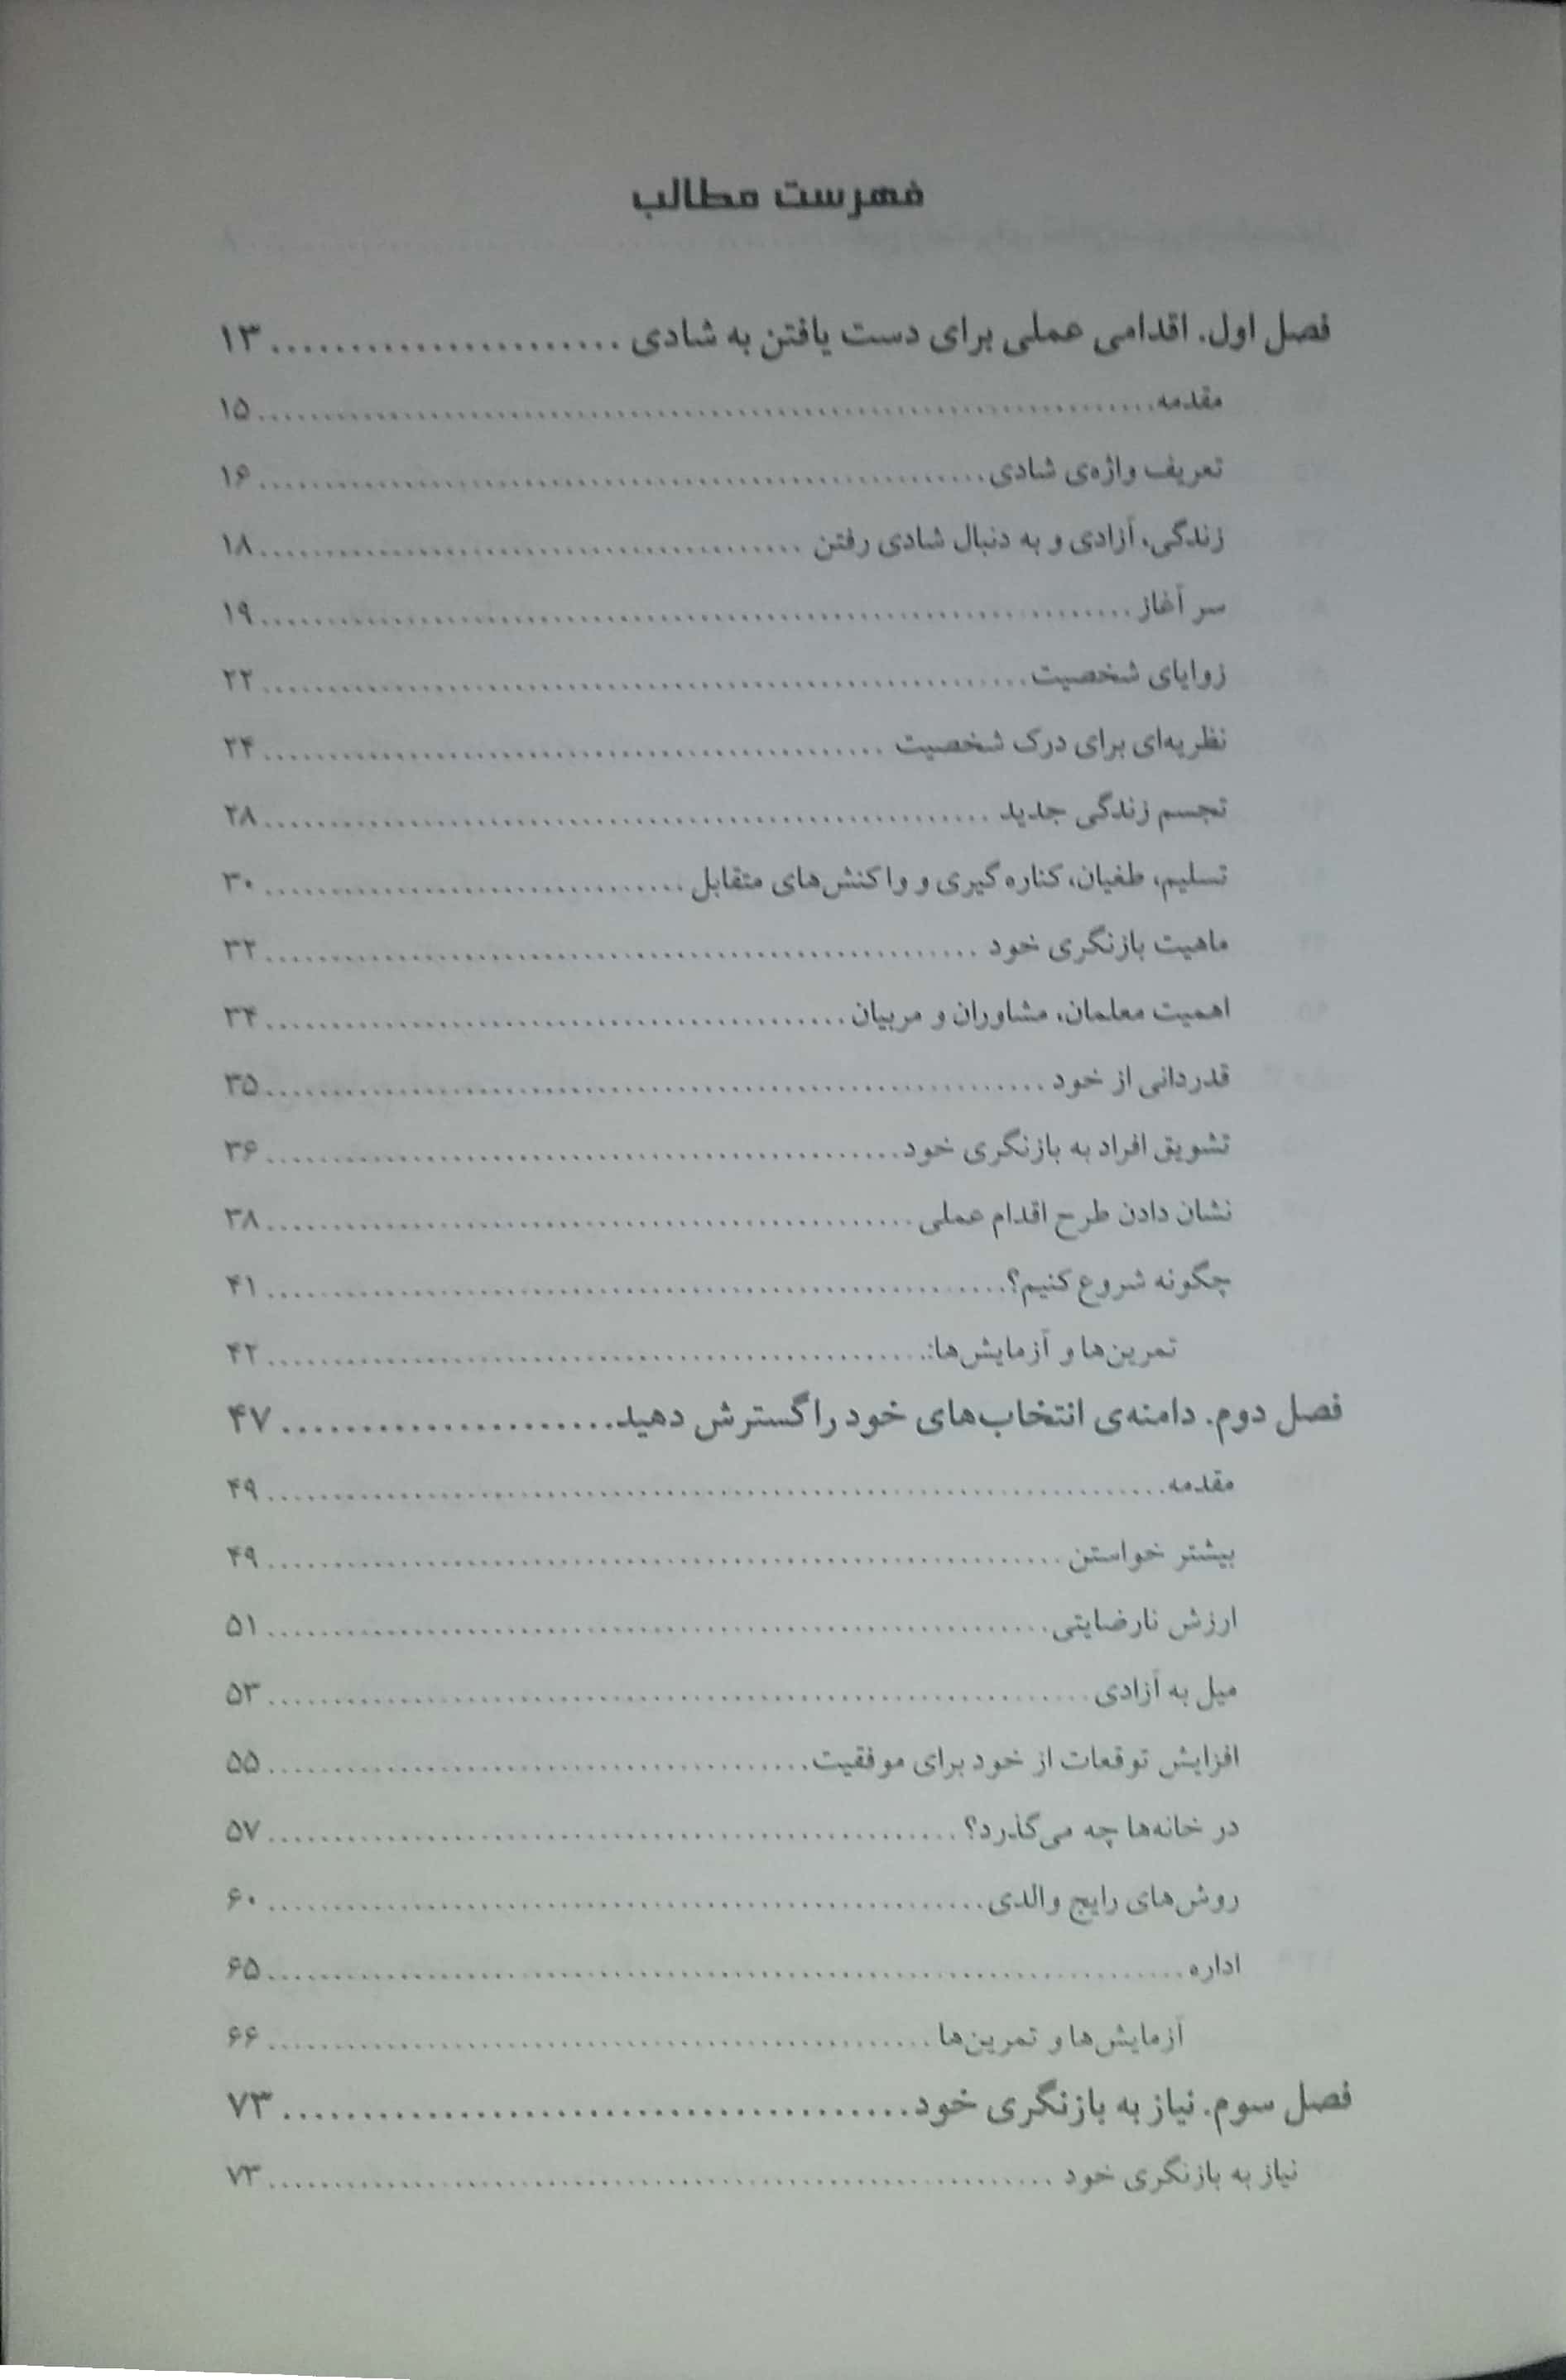 فهرست مطالب
فصل اول. اقدامی عملی برای دست یافتن به شادی ...................... ۱۳
مقدمه ...................... ۱۵
تعریف واژه‌ی شادی ...................... ۱۶
زندگی، آزادی و به دنبال شادی رفتن ...................... ۱۸
سر آغاز ...................... ۱۹
زوایای شخصیت ...................... ۲۲
نظریه‌ای برای درک شخصیت ...................... ۲۴
تجسم زندگی جدید ...................... ۲۸
تسلیم، طغیان، کناره گیری و واکنش‌های متقابل ...................... ۳۰
ماهیت بازنگری خود ...................... ۳۲
اهمیت معلمان، مشاوران و مربیان ...................... ۳۴
قدردانی از خود ...................... ۳۵
تشویق افراد به بازنگری خود ...................... ۳۶
نشان دادن طرح اقدام عملی ...................... ۳۸
چگونه شروع کنیم؟ ...................... ۴۱
تمرین‌ها و آزمایش‌ها: ...................... ۴۲
فصل دوم. دامنه‌ی انتخاب‌های خود را گسترش دهید ...................... ۴۷
مقدمه ...................... ۴۹
بیشتر خواستن ...................... ۴۹
ارزش نارضایتی ...................... ۵۱
میل به آزادی ...................... ۵۳
افزایش توقعات از خود برای موفقیت ...................... ۵۵
در خانه‌ها چه می‌گذرد؟ ...................... ۵۷
روش‌های رایج والدی ...................... ۶۰
اداره ...................... ۶۵
آزمایش‌ها و تمرین‌ها ...................... ۶۶
فصل سوم. نیاز به بازنگری خود ...................... ۷۳
نیاز به بازنگری خود ...................... ۷۳